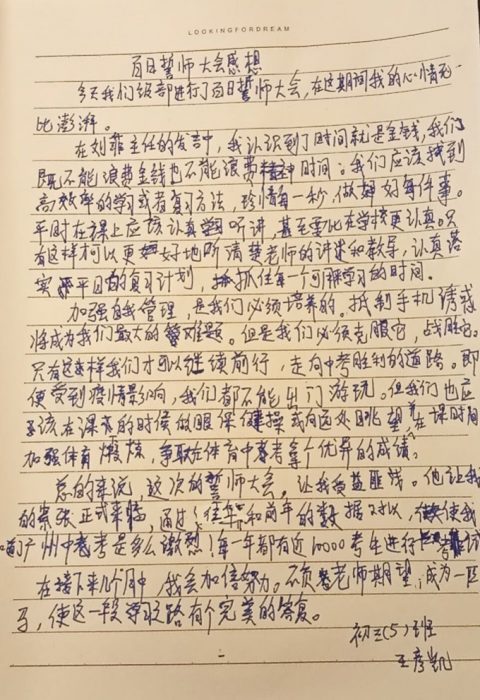 LOOKINGFORDREAM
百日誓师大会感想
今天我们级部进行了百日誓师大会，在这期间我的心情无
比澎湃。
在刘菲主任的发言中，我认识到了时间就是金钱，我们
既不能浪费金钱也不能浪费时间。我们应该找到
高效率的学习或者复习方法，珍惜每一秒，做好每件事。
平时在课上应该认真听讲，甚至要比在学校更认真。只
有这样才可以更好地听清楚老师的讲述和教导，认真落
实平日的复习计划，抓住每一个可学习的时间。
加强自我管理，是我们必须培养的。抵制手机诱惑
将成为我们最大的难题。但是我们必须克服它，战胜它。
只有这样我们才可以继续前行，走向中考胜利的道路。即
使受到疫情影响，我们都不能出门游玩。但我们也应
该在课间的时候做眼保健操或向远处眺望，在课时间
加强体育锻炼，争取在体育中考拿个优异的成绩。
总的来说，这次的誓师大会，让我受益匪浅。他让我
的紧张正式来临，通过往年和前年的数据对比，使我
广州中考是多么激烈！每一年都有近10000考生进行
在接下来几个月中，我会加倍努力。不负老师期望，成为一匹
马，使这一段学习之路有个完美的答复。
初三(5)班
王彦凯